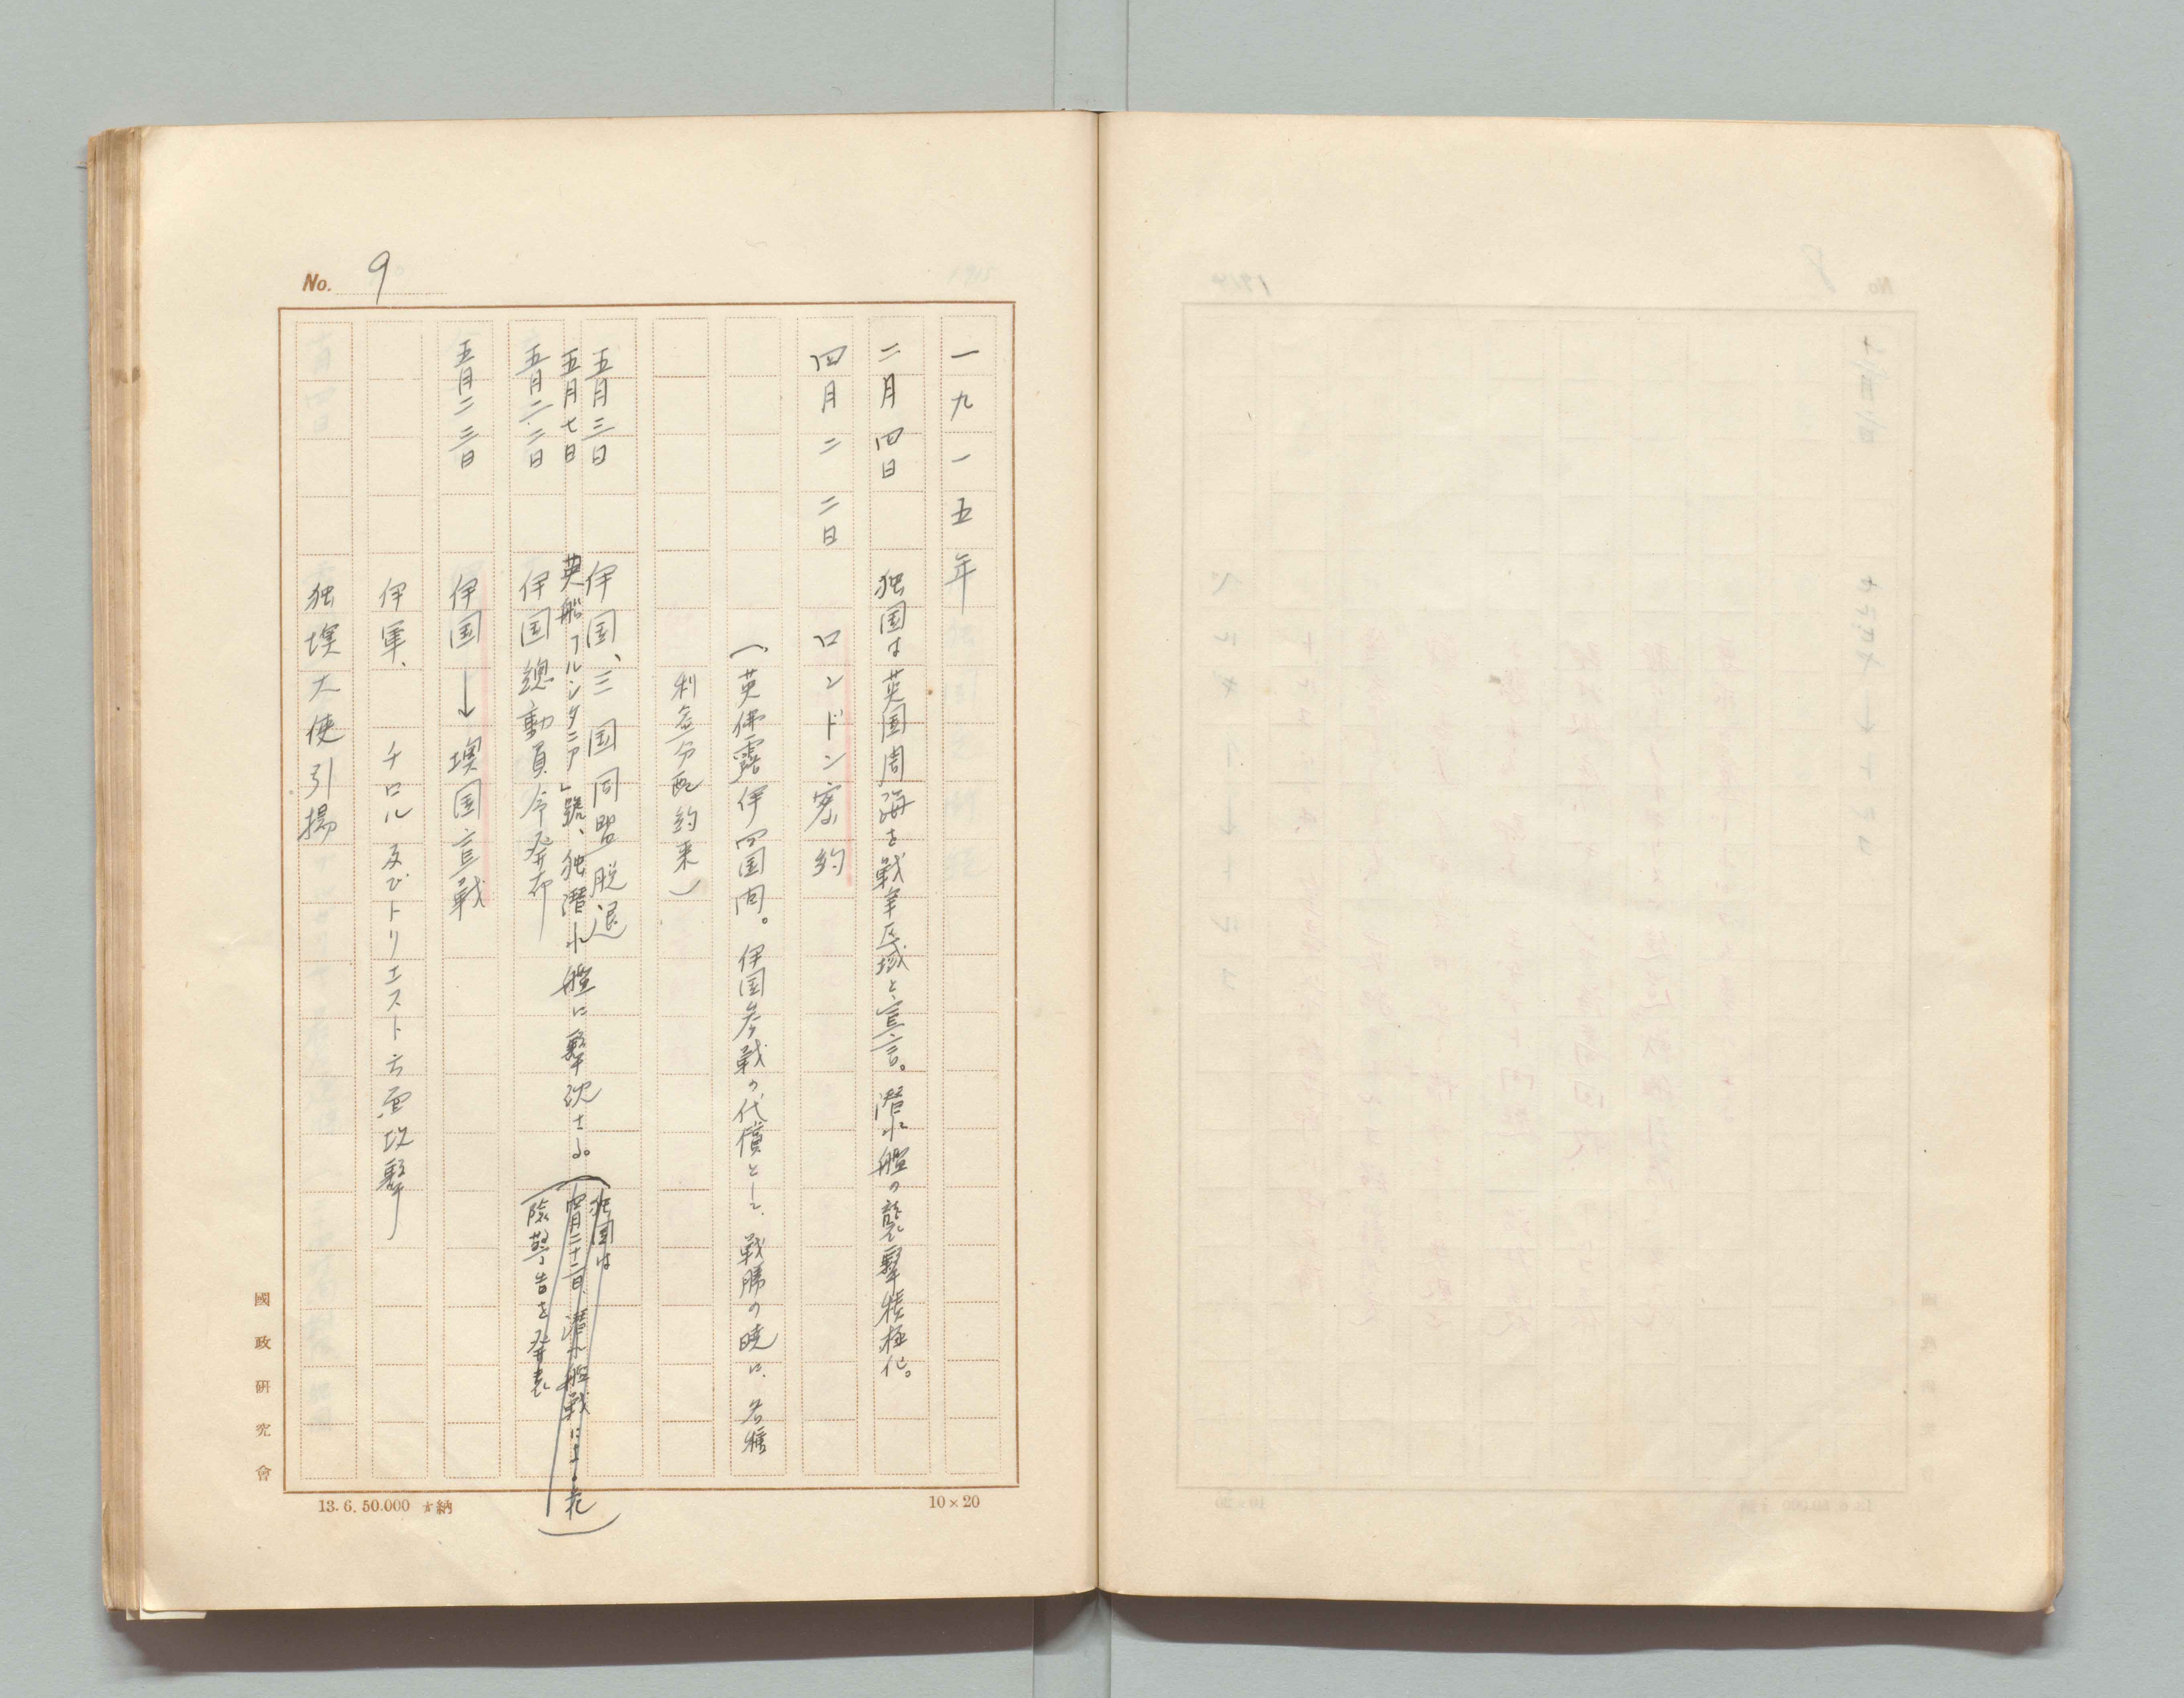 No. 9
一九一五年
二月四日 独国は英国周海を戦争区域と宣言。潜水艦の襲撃積極化。
四月二二日 ロンドン密約
(英佛露伊四国間。伊国参戦の代償として、戦勝の暁に、各種
利益分配約束)
五月三日 伊国、三国同盟脱退
五月七日 英船「ルシタニア」號、独潜水艦に撃沈さる。
(独国は
四月二十二日、潜水艦戦による危
険警告を発表)
五月二二日 伊国總動員令発布
五月二三日 伊国→墺国宣戦
伊軍、チロル及びトリエスト方面攻撃
独墺大使引揚
國政研究會
13.6.50.000 納
10×20